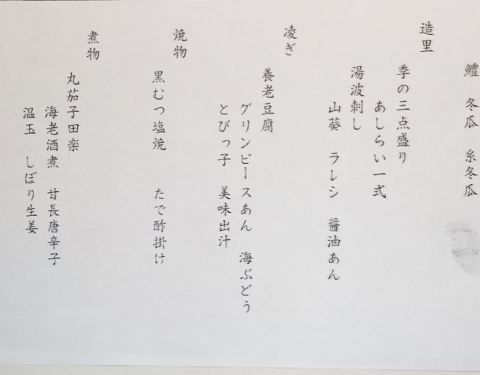 鱧　冬瓜　糸冬瓜
造里
季の三点盛り
あしらい一式
湯波刺し
山葵　ラレシ　醤油あん
凌ぎ
養老豆腐
グリンピースあん　海ぶどう
とびっ子　美味出汁
焼物
黒むつ塩焼　たで酢掛け
煮物
丸茄子田楽
海老酒煮　甘長唐辛子
温玉　しぼり生姜